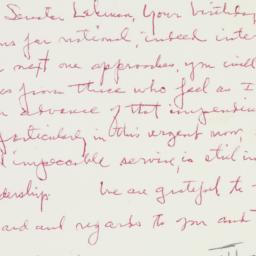 Senator Lehman, Your birthday
for national, indeed inter
next one approaches, you will
from those who feel as I
in advance of that impending
particularly in this urgent mom
impeccable service, is still in
dership. We are grateful to
and regards to you and